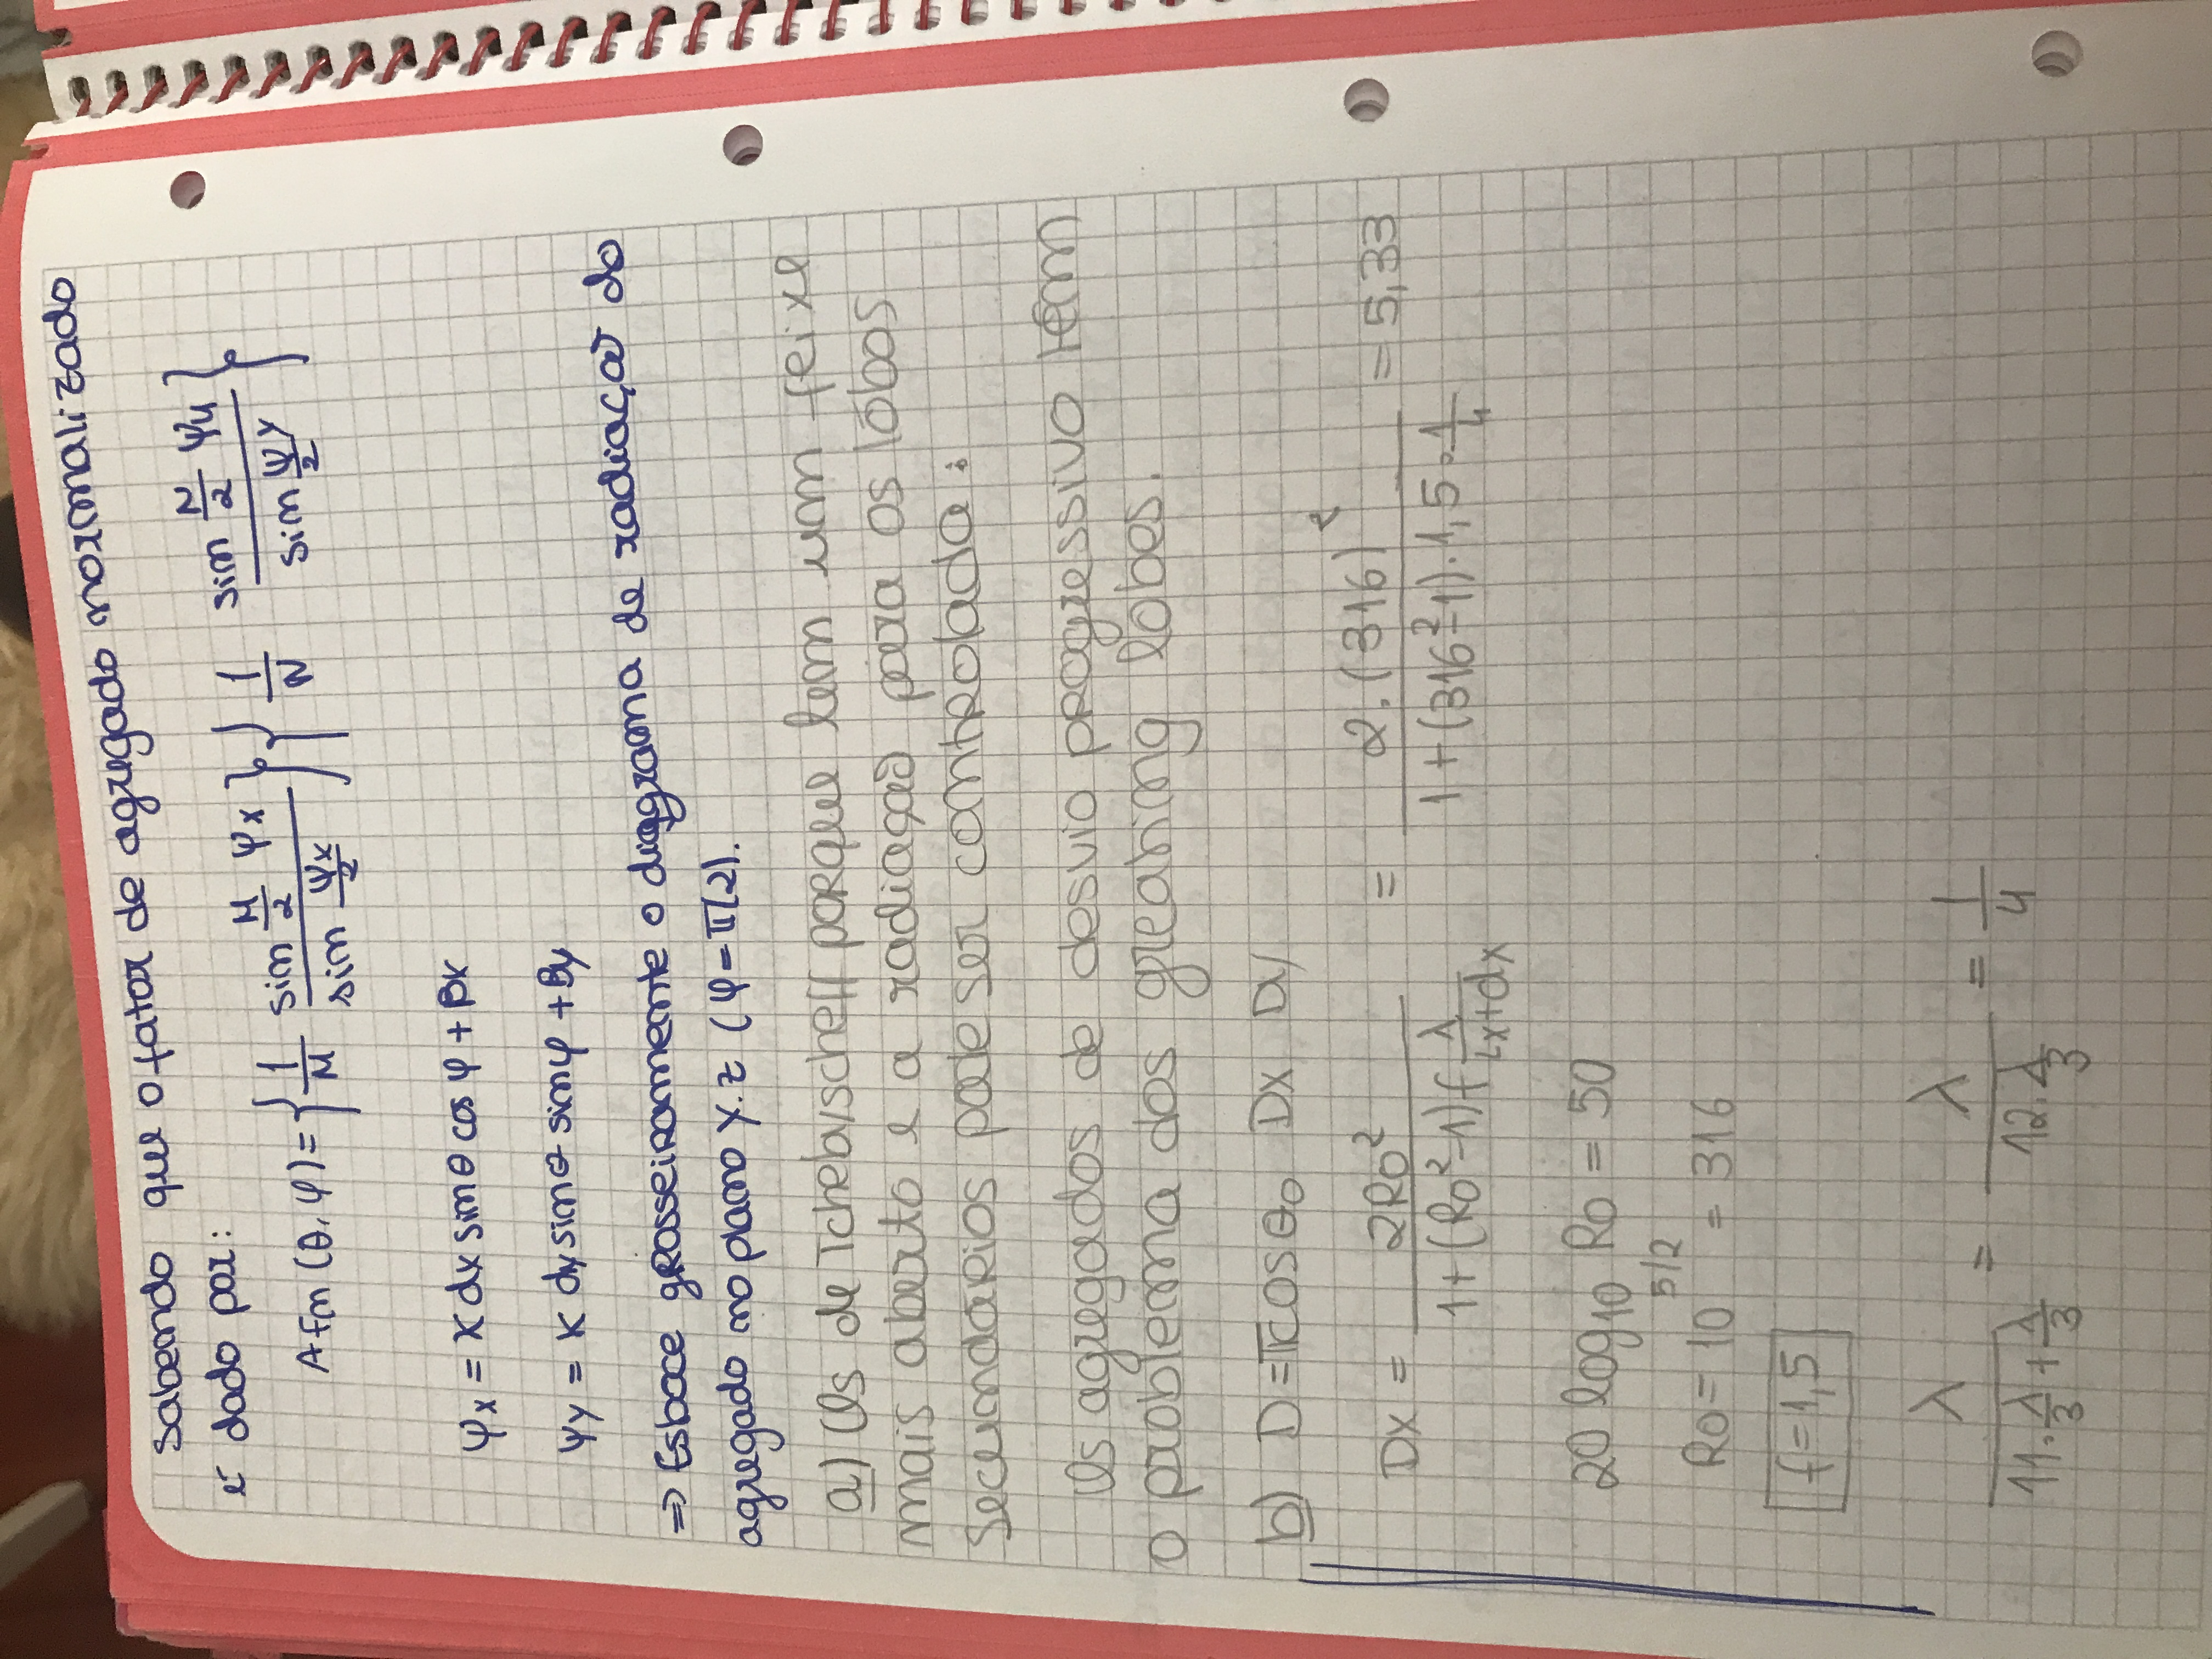 Sabendo que o fator de agregado normalizado
é dado por:
Afn (θ, φ) = { 1/M sin M/2 ψx / sin ψx/2 } { 1/N sin N/2 ψy / sin ψy/2 }
ψx = K dx sinθ cos φ + βx
ψy = K dy sinθ sinφ + βy
⇒ Esboce grosseiramente o diagrama de radiação do
agregado no plano y.z (φ = π/2).
a) Os de Tchebyscheff porque tem um feixe
mais aberto e a radiação para os lóbos
secundários pode ser controlada.
Os agregados de desvio progressivo têm
o problema dos greating lobes.
b) D = π cos θ0 Dx Dy
Dx = 2R0² / 1 + (R0² - 1) f λ/Lx+dx = 2.(316)² / 1 + (316² - 1).1,5.1/4 = 5,33
20 log10 R0 = 50
R0 = 10^5/2 = 316
f = 1,5
λ / 11.λ/3 + λ/3 = λ / 12.λ/3 = 1/4